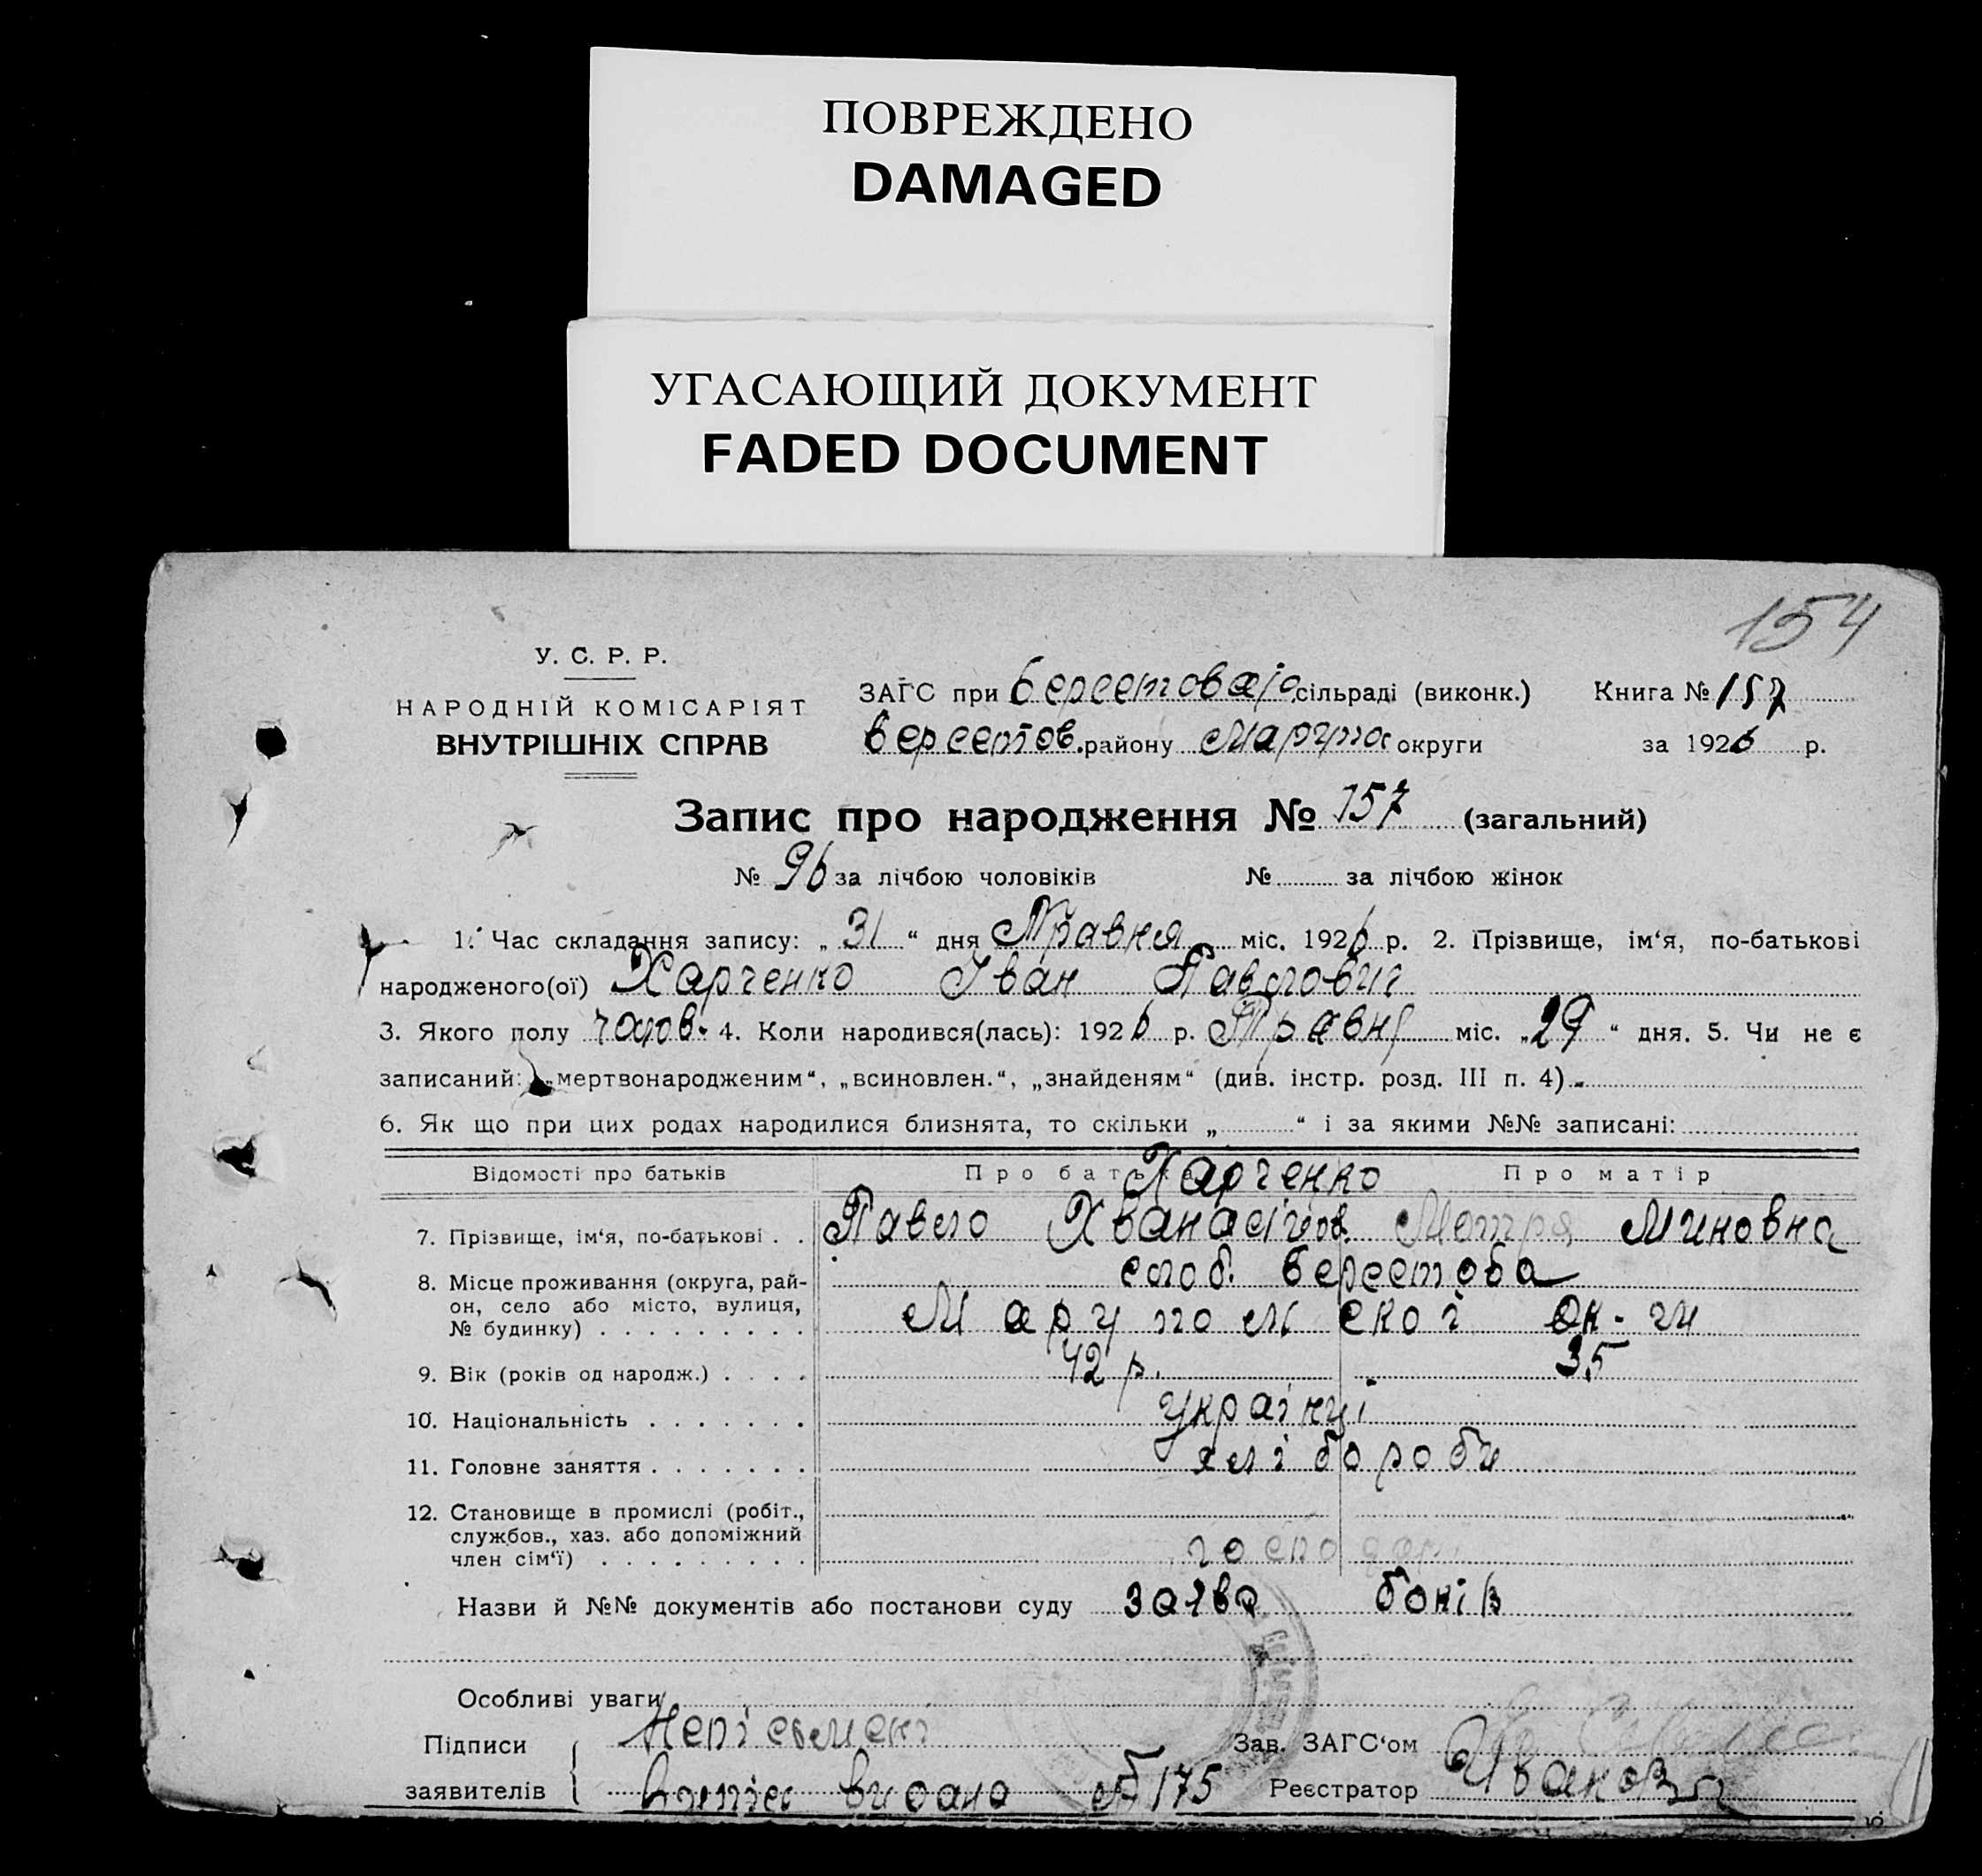 ПОВРЕЖДЕНО
DAMAGED
УГАСАЮЩИЙ ДОКУМЕНТ
FADED DOCUMENT
154
У. С. Р. Р.
НАРОДНІЙ КОМІСАРІЯТ
ВНУТРІШНІХ СПРАВ
ЗАГС при сільраді (виконк.) Книга № 157
Берестов. району Маріуп округи за 1926 р.
Запис про народження № 157 (загальний)
№ 96 за лічбою чоловіків № за лічбою жінок
1. Час складання запису: „ 31 “ дня Травня міс. 1926 р. 2. Прізвище, ім‘я, по-батькові
народженого(ої) Харченко Іван Павлович
3. Якого полу чолов. 4. Коли народився(лась): 1926 р. Травня міс. „29“ дня. 5. Чи не є
записаний: „мертвонародженим“, „всиновлен.“, „знайденям“ (див. інстр. розд. III п. 4)
6. Як що при цих родах народилися близнята, то скільки „ “ і за якими №№ записані:
Відомості про батьків Про батька Про матір
Харченко
7. Прізвище, ім‘я, по-батькові . . Павло Хванасійов. Мотря Миновна
8. Місце проживання (округа, рай-
он, село або місто, вулиця,
№ будинку) . . . . . . . . .
слоб. Берестова
Маруполської ок-ги
9. Вік (років од народж.) . . . . 42 р. 35
10. Національність . . . . . . . українці
11. Головне заняття . . . . . . . хліборобы
12. Становище в промислі (робіт.,
службов., хаз. або допоміжний
член сім‘ї) . . . . . . . . . господарі
Назви й №№ документів або постанови суду заява батьків
Особливі уваги
Підписи
заявителів
Неписьмені
видано № 175
Зав. ЗАГС‘ом
Реєстратор Иванова